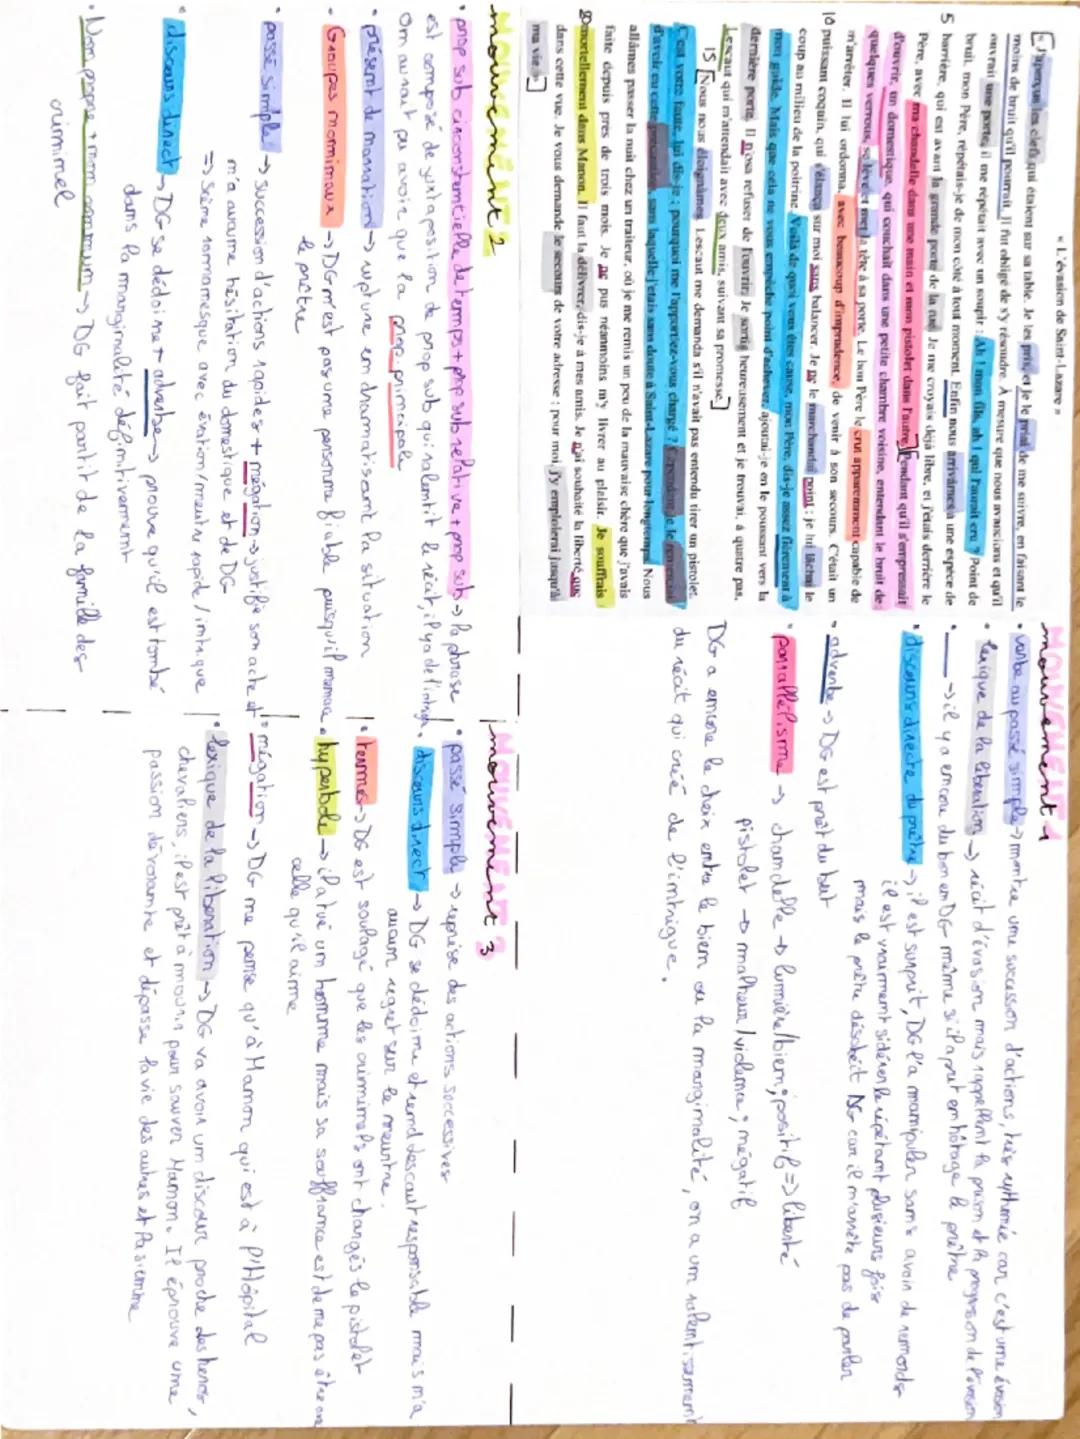 « L'évasion de Saint-Lazare »
[« J'aperçus les clefs qui étaient sur sa table. Je les pris, et je le priai de me suivre, en faisant le
moins de bruit qu'il pourrait. Il fut obligé de s'y résoudre. À mesure que nous avancions et qu'il
ouvrait une porte, il me répétait avec un soupir : Ah ! mon fils, ah ! qui l'aurait cru ? Point de
bruit, mon Père, répétais-je de mon côté à tout moment. Enfin nous arrivâmes à une espèce de
5 barrière, qui est avant la grande porte de la rue. Je me croyais déjà libre, et j'étais derrière le
Père, avec ma chandelle dans une main et mon pistolet dans l'autre.] [Pendant qu'il s'empressait
d'ouvrir, un domestique, qui couchait dans une petite chambre voisine, entendant le bruit de
quelques verrous, se lève et met la tête à sa porte. Le bon Père le crut apparemment capable de
m'arrêter. Il lui ordonna, avec beaucoup d'imprudence, de venir à son secours. C'était un
10 puissant coquin, qui s'élança sur moi sans balancer. Je ne le marchandai point ; je lui lâchai le
coup au milieu de la poitrine. Voilà de quoi vous êtes cause, mon Père, dis-je assez fièrement à
mon guide. Mais que cela ne vous empêche point d'achever, ajoutai-je en le poussant vers la
dernière porte. Il n'osa refuser de l'ouvrir. Je sortis heureusement et je trouvai, à quatre pas,
Lescaut qui m'attendait avec deux amis, suivant sa promesse.]
15 [Nous nous éloignâmes. Lescaut me demanda s'il n'avait pas entendu tirer un pistolet.
C'est votre faute, lui dis-je ; pourquoi me l'apportiez-vous chargé ? Cependant je le remerciai
d'avoir eu cette précaution, sans laquelle j'étais sans doute à Saint-Lazare pour longtemps. Nous
allâmes passer la nuit chez un traiteur, où je me remis un peu de la mauvaise chère que j'avais
faite depuis près de trois mois. Je ne pus néanmoins m'y livrer au plaisir. Je souffrais
20 mortellement dans Manon. Il faut la délivrer, dis-je à mes amis. Je n'ai souhaité la liberté que
dans cette vue. Je vous demande le secours de votre adresse ; pour moi, j'y emploierai jusqu'à
ma vie »]
mouvement 1
• verbe au passé simple → montre une succession d'actions, très rythmée car c'est une évasion
• lexique de la liberation → récit d'évasion mais rappellent la prison et la progression de l'évasion
• → il y a encore du bon en DG même si il a prit en hôtage le prêtre
• discours directe du prêtre → il est surprit, DG l'a manipuler sans avoir de remords
il est vraiment sidérer le répétant plusieurs fois
mais le prêtre désobéit DG car il n'arrête pas de parler
• adverbe → DG est prêt du but
• parallélisme → chandelle → lumière/bien, positif => liberté
pistolet → malheur/violence, négatif
DG a encore le choix entre le bien ou la marginalité, on a un ralentissement
du récit qui créé de l'intrigue.
mouvement 2
• prop sub circonstentielle de temps + prop sub relative + prop sub → la phrase
est composé de juxtaposition de prop sub qui ralentit le récit, il y a de l'intrigue
On aurait pu avoir que la prop. principale
• présent de narration → rupture en dramatisant la situation
• Groupes nominaux → DG n'est pas une personne fiable puisqu'il menace
le prêtre
• passé simple → succession d'actions rapides + négation → justifie son acte et
n'a aucune hésitation du domestique et de DG
=> Scène romanesque avec évasion/meurtre rapide/intrigue
• discours direct → DG se dédoine + adverbe → prouve qu'il est tombé
dans la marginalité définitivement
• Nom propre + nom commun → DG fait partit de la famille des
criminel
mouvement 3
• passé simple → reprise des actions successives
• discours direct → DG se dédoine et rend Lescaut responsable mais n'a
aucun regret sur le meurtre.
• termes → DG est soulagé que les criminels ont chargés le pistolet
• hyperbole → il a tué un homme mais sa souffrance est de ne pas être avec
celle qu'il aime
• négation → DG ne pense qu'à Manon qui est à l'Hôpital
• lexique de la liberation → DG va avoir un discour proche des héros,
chevaliers, il est prêt à mourir pour sauver Manon. Il éprouve une
passion dévorante et dépasse la vie des autres et la sienne